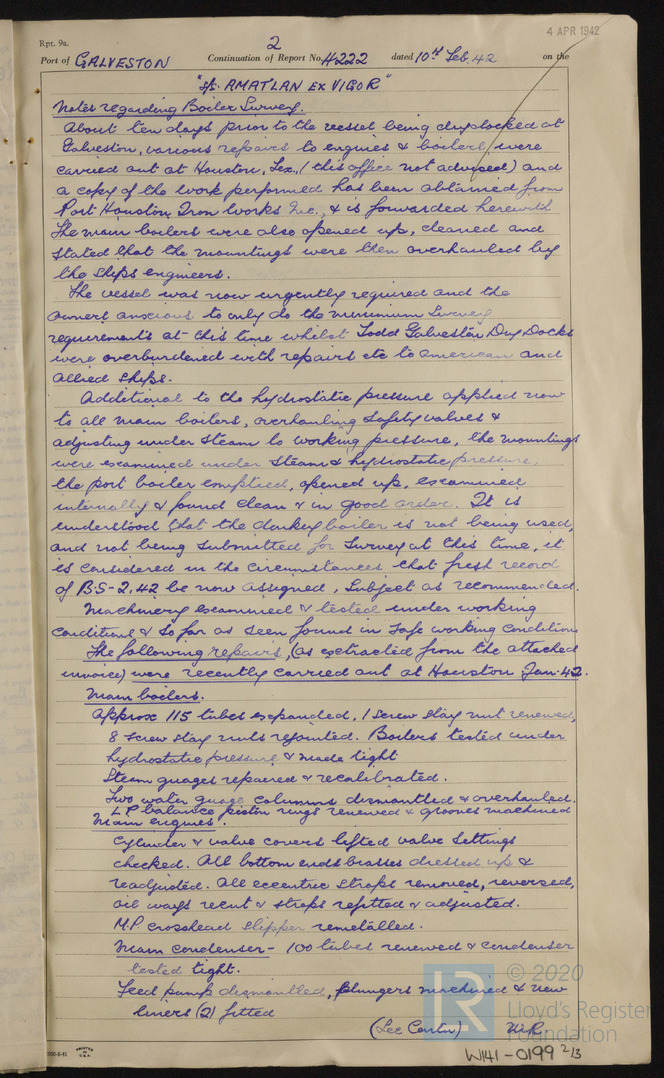 4 APR 1942
Rpt. 9a.
2
Port of GALVESTON Continuation of Report No. 4222 dated 10th Feb. 42 on the
"S/S. AMATLAN EX VIGOR"
Notes regarding Boiler Survey.
About ten days prior to the vessel being drydocked at
Galveston, various repairs to engines & boilers were
carried out at Houston, Tex., (this office not advised) and
a copy of the work performed has been obtained from
Port Houston Iron Works Inc., & is forwarded herewith
The main boilers were also opened up, cleaned and
stated that the mountings were then overhauled by
the ships engineers.
The vessel was now urgently required and the
owners anxious to only do the minimum Survey
requirements at this time whilst Todd Galveston Dry Docks
were overburdened with repairs etc to American and
allied ships.
Additional to the hydrostatic pressure applied now
to all main boilers, overhauling Safety valves &
adjusting under steam to working pressure, the mountings
were examined under steam & hydrostatic pressure,
the port boiler emptied, opened up, examined
internally & found clean & in good order. It is
understood that the donkey boiler is not being used,
and not being submitted for Survey at this time, it
is considered in the circumstances that fresh record
of B.S-2,42 be now assigned, Subject as recommended.
Machinery examined & tested under working
conditions & so far as seen found in safe working condition
The following repairs, (as extracted from the attached
invoice) were recently carried out at Houston Jan. 42.
Main boilers.
Approx 115 tubes expanded, 1 screw stay nut renewed,
8 screw stay nuts rejointed. Boilers tested under
hydrostatic pressure & made tight
Steam guages repaired & recalibrated.
Two water guage columns dismantled & overhauled.
L.P. balance piston rings renewed & grooves machined
Main engines.
Cylinder & valve covers lifted valve settings
checked. All bottom ends brasses dressed up &
readjusted. All eccentric straps removed, reversed,
oil ways recut & straps refitted & adjusted.
M.P. crosshead slipper remetalled.
Main condenser - 100 tubes renewed & condenser
tested tight.
Feed pump dismantled, plungers machined & new
liners (2) fitted
W141-0199 2/3
LR
© 2020
Lloyd's Register
Foundation